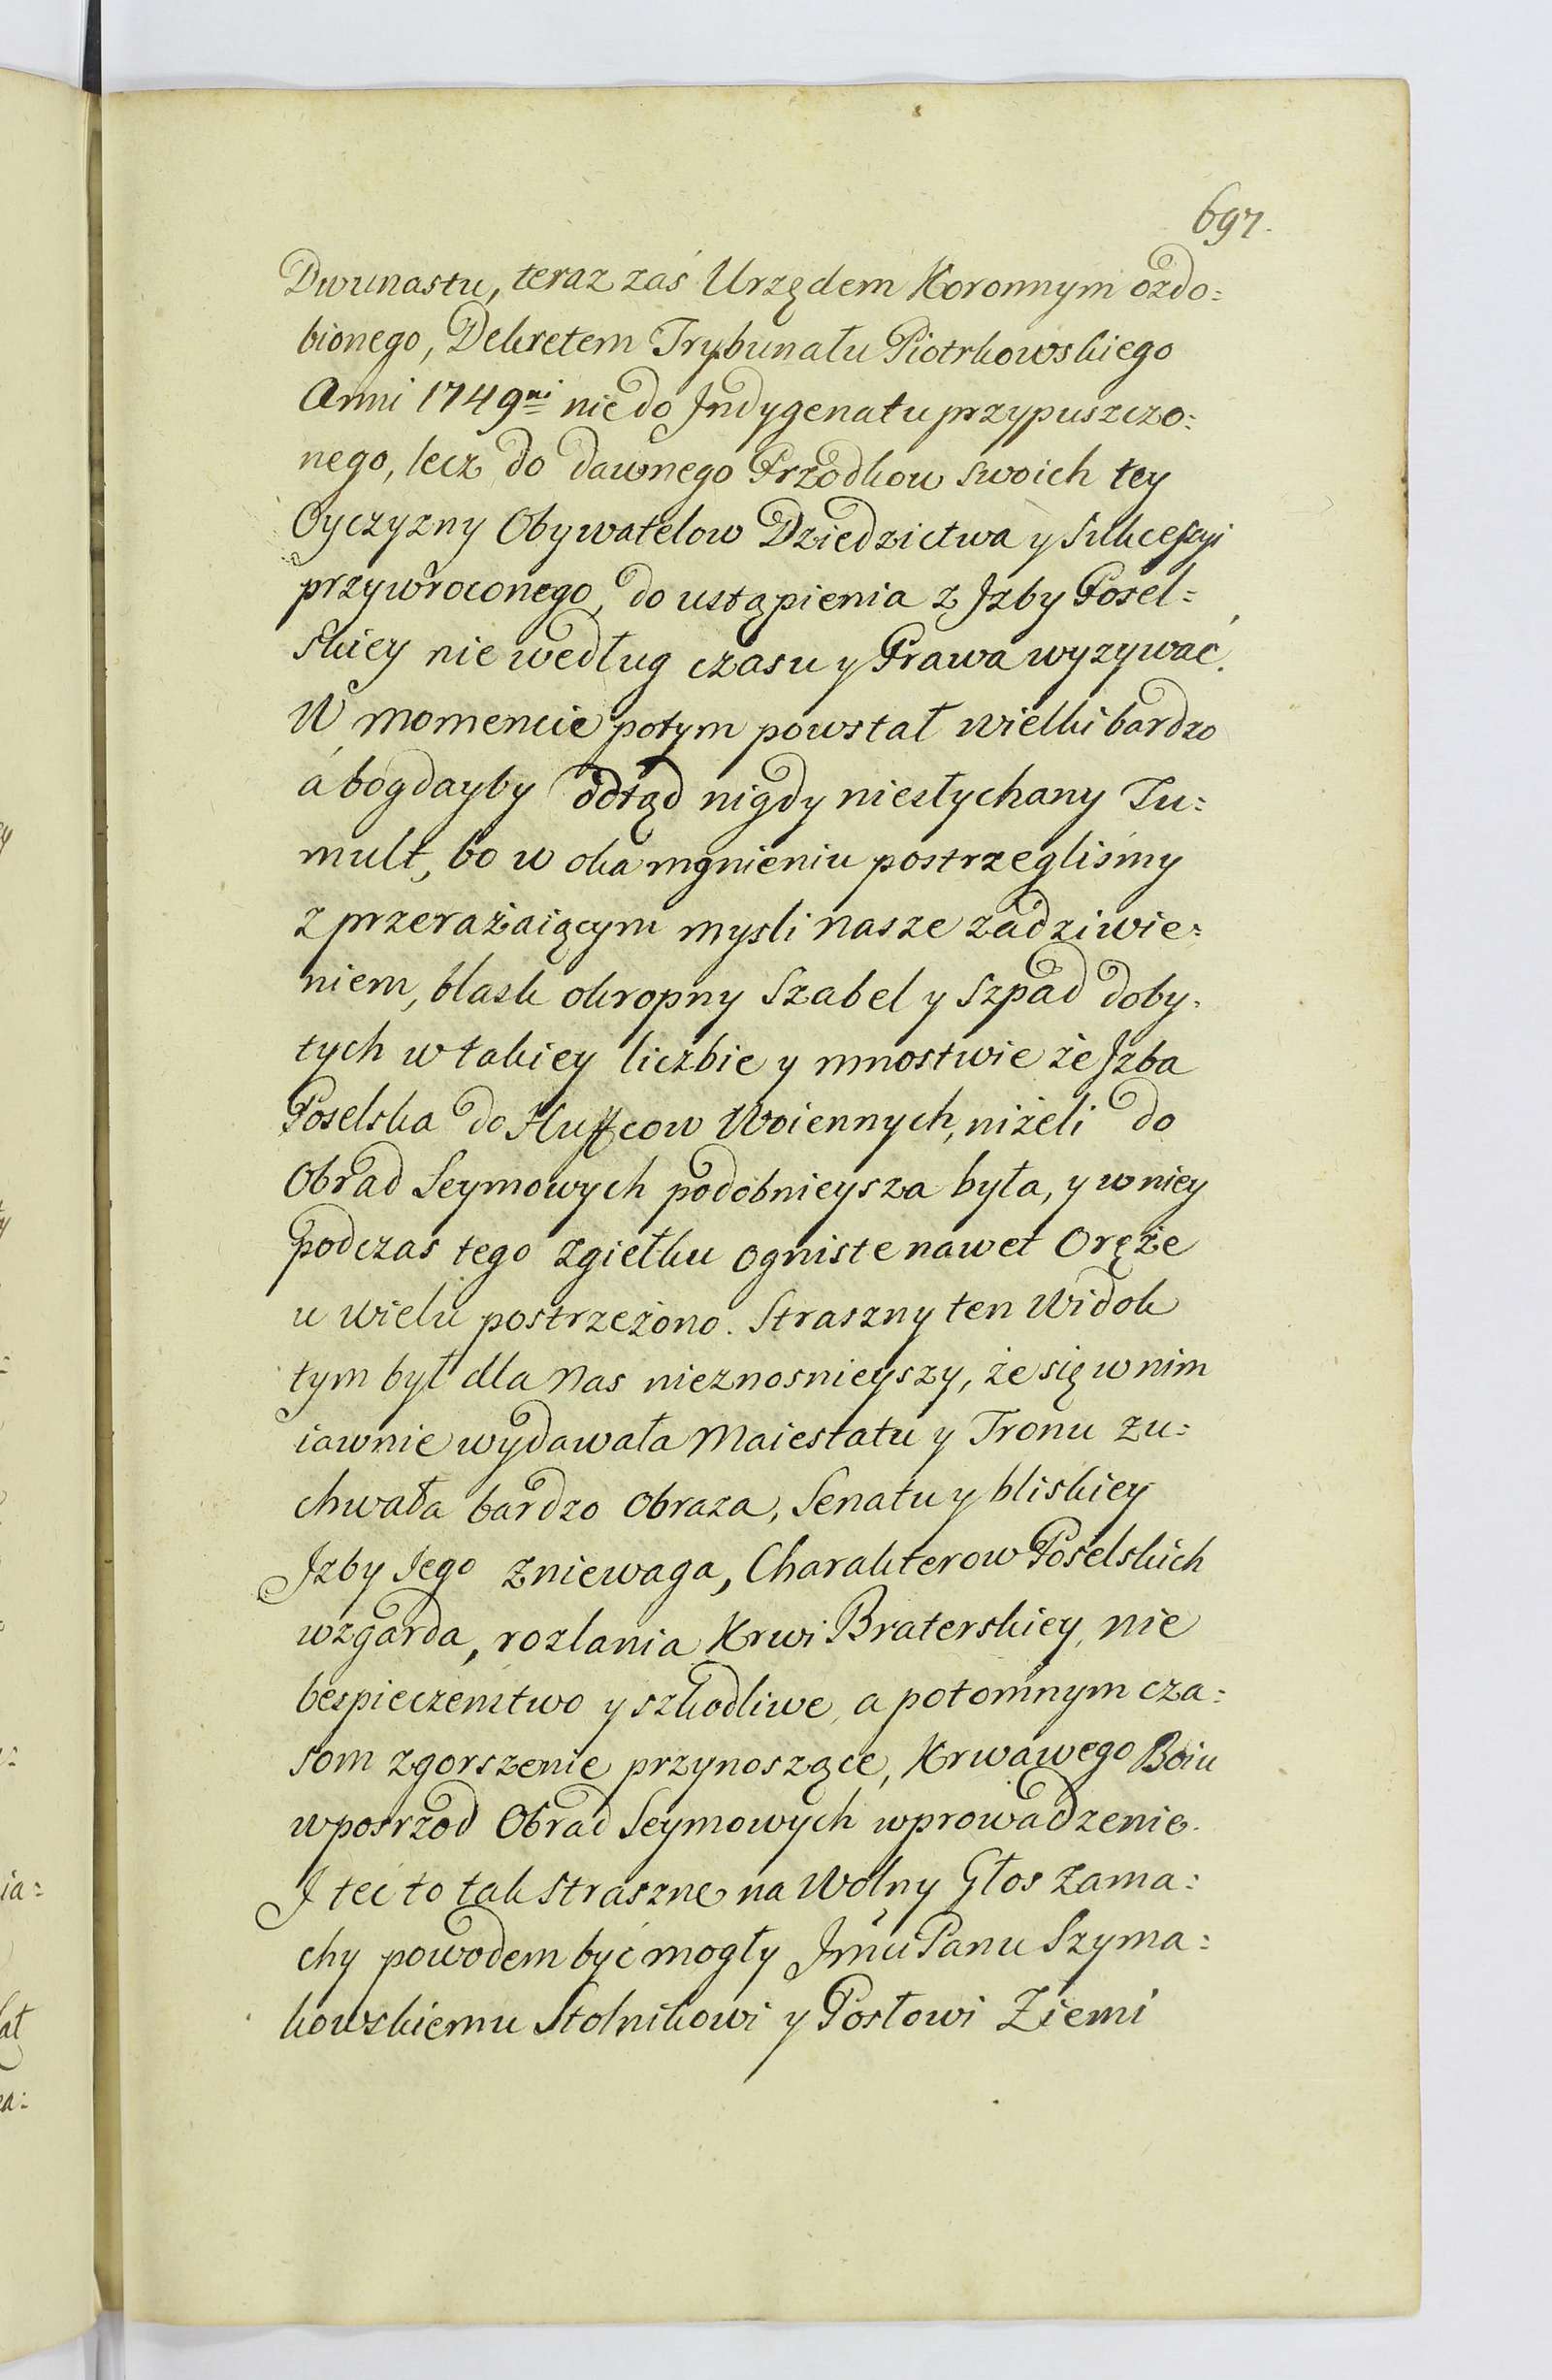 697.
Dwunastu, teraz zaś Urzędem Koronnym ozdo=
bionego, Dekretem Trybunału Piotrkowskiego
Anni 1749ni nie do Jndygenatu przypuszczo=
nego, lecz do dawnego Przodkow swoich tey
Oyczyzny Obywatelow Dziedzictwa y Sukcessyi
przywroconego, do ustąpienia z Jzby Posel=
skiey nie według czasu y Prawa wyzywać.
W momencie potym powstał wielki bardzo
á bogdayby odtąd nigdy niesłychany Tu=
mult, bo w oka mgnieniu postrzegliśmy
z przerażaiącym mysli nasze zadziwie=
niem, blask okropny Szabel y Szpad doby=
tych w takiey liczbie y mnostwie że Jzba
Poselska do Huffcow Woiennych, niżeli do
Obrad Seymowych podobnieysza była, y w niey
podczas tego zgiełku ogniste nawet Oręże
u wielu postrzeżono. Straszny ten Widok
tym był dla Nas nieznosnieyszy, że się w nim
iawnie wydawała Maiestatu y Tronu zu=
chwała bardzo Obraza, Senatu y bliskiey
Jzby Jego zniewaga, Charakterow Poselskich
wzgarda, rozlania Krwi Braterskiey, nie
bespieczenstwo y szkodliwe, a potomnym cza=
som zgorszenie przynoszące, Krwawego Boiu
w posrzod Obrad Seymowych wprowadzenie.
J teć to tak straszne na Wolny Głos zama=
chy powodem być mogły Jmu Panu Szyma=
kowskiemu Stolnikowi y Posłowi Ziemi
ia=